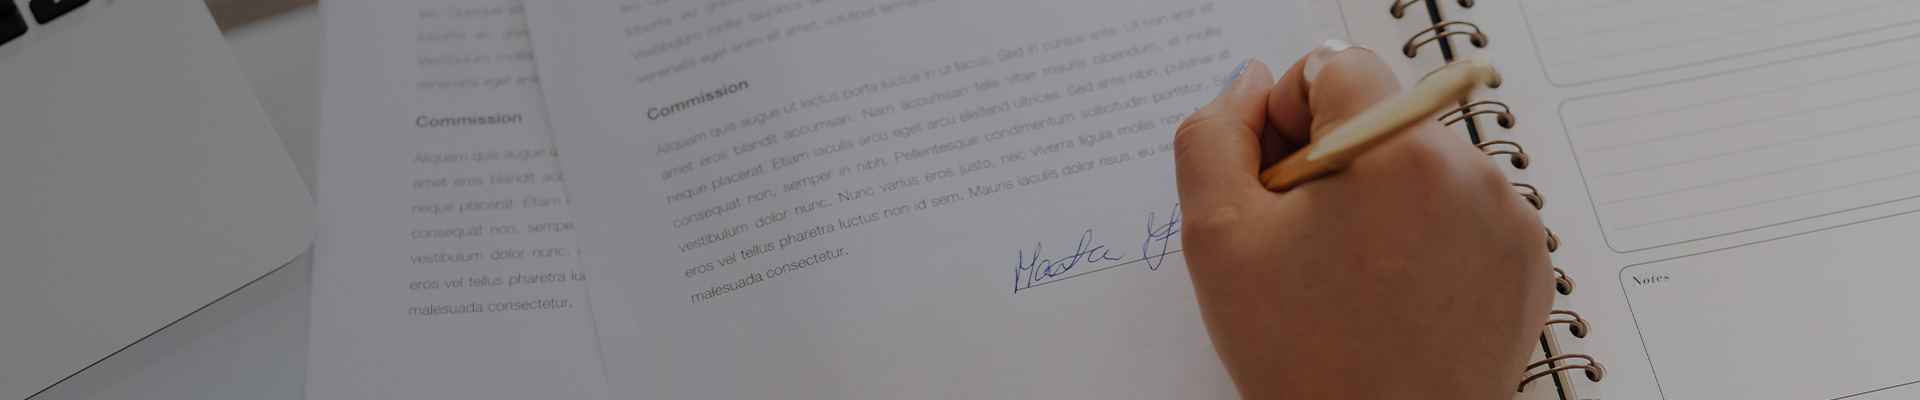 Commission
Aliquam quis augue u
amet eros blandit acc
neque placerat. Etiam i
consequat non, sempe
vestibulum dolor nunc.
eros vel tellus pharetra lu
malesuada consectetur.
lobortis eu
Vestibulum mollis faucibus
venenatis eget enim sit amet, volutpat
Commission
Aliquam quis augue ut lectus porta luctus in ut lacus. Sed in cursus ante. Ut non erat sit
amet eros blandit accumsan. Nam accumsan felis vitae mauris bibendum, et mollis
neque placerat. Etiam iaculis arcu eget arcu eleifend ultrices. Sed ante nibh, pulvinar at
consequat non, semper in nibh. Pellentesque condimentum sollicitudin porttitor. S
vestibulum dolor nunc. Nunc varius eros justo, nec viverra ligula mollis non
eros vel tellus pharetra luctus non id sem. Mauris iaculis dolor risus, eu se
malesuada consectetur.
Notes